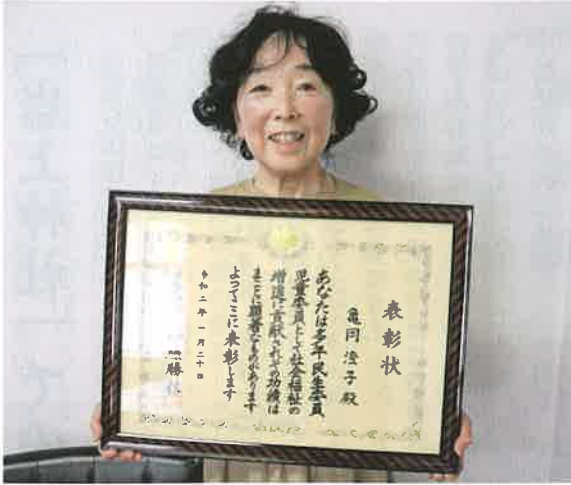 表彰状
亀岡澄子殿
あなたは多年民生委員
児童委員として社会福祉の
増進に貢献されその功績は
まことに顕著なものがあります
よってここに表彰します
令和二年一月二十日
勝